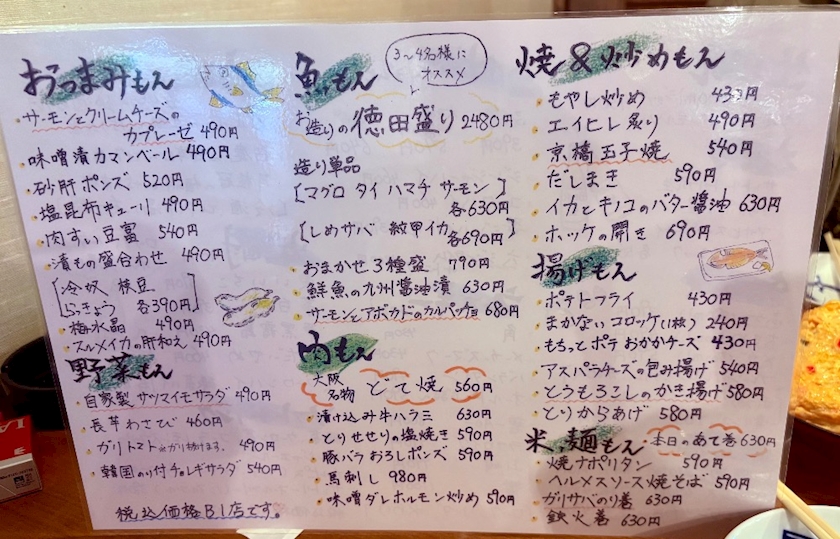 おつまみもん
サーモンとクリームチーズの
カプレーゼ 490円
味噌漬カマンベール 490円
砂肝ポンズ 520円
塩昆布キューリ 490円
肉すい豆富 540円
漬もの盛合わせ 490円
冷奴 枝豆
らっきょう 各390円
梅水晶 490円
スルメイカの肝和え 490円
野菜もん
自家製 サツマイモサラダ 490円
長芋わさび 460円
ガリトマト※ガリ抜けます。 490円
韓国のり付チョレギサラダ 540円
税込価格B1店です。
魚もん
3〜4名様に
オススメ
お造りの徳田盛り 2480円
造り単品
[マグロ タイ ハマチ サーモン]
各630円
[しめサバ 紋甲イカ]
各690円
おまかせ3種盛 790円
鮮魚の九州醤油漬 630円
サーモンとアボカドのカルパッチョ 680円
肉もん
大阪名物 どて焼 560円
漬け込み牛ハラミ 630円
とりせせりの塩焼き 590円
豚バラおろしポンズ 590円
馬刺し 980円
味噌ダレホルモン炒め 590円
焼&炒めもん
もやし炒め 430円
エイヒレ炙り 490円
京橋玉子焼 540円
だしまき 590円
イカとキノコのバター醤油 630円
ホッケの開き 690円
揚げもん
ポテトフライ 430円
まかないコロッケ(1枚) 240円
もちっとポテおかかチーズ 430円
アスパラチーズの包み揚げ 540円
とうもろこしのかき揚げ 580円
とりからあげ 580円
米、麺もん
本日のあて巻 630円
焼ナポリタン 590円
ヘルメスソース焼そば 590円
ガリサバのり巻 630円
鉄火巻 630円